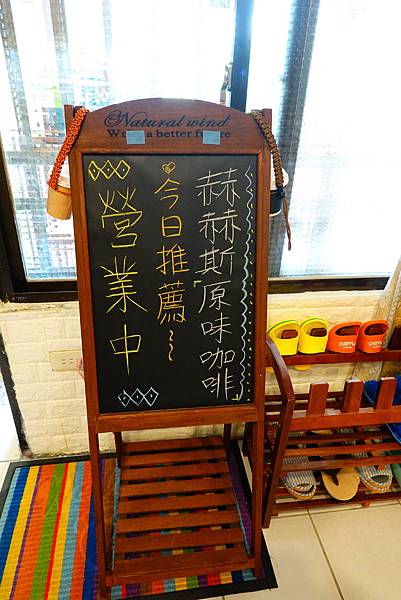 Natural wind
W a better future
赫赫斯『原味咖啡』
今日推薦~
營業中